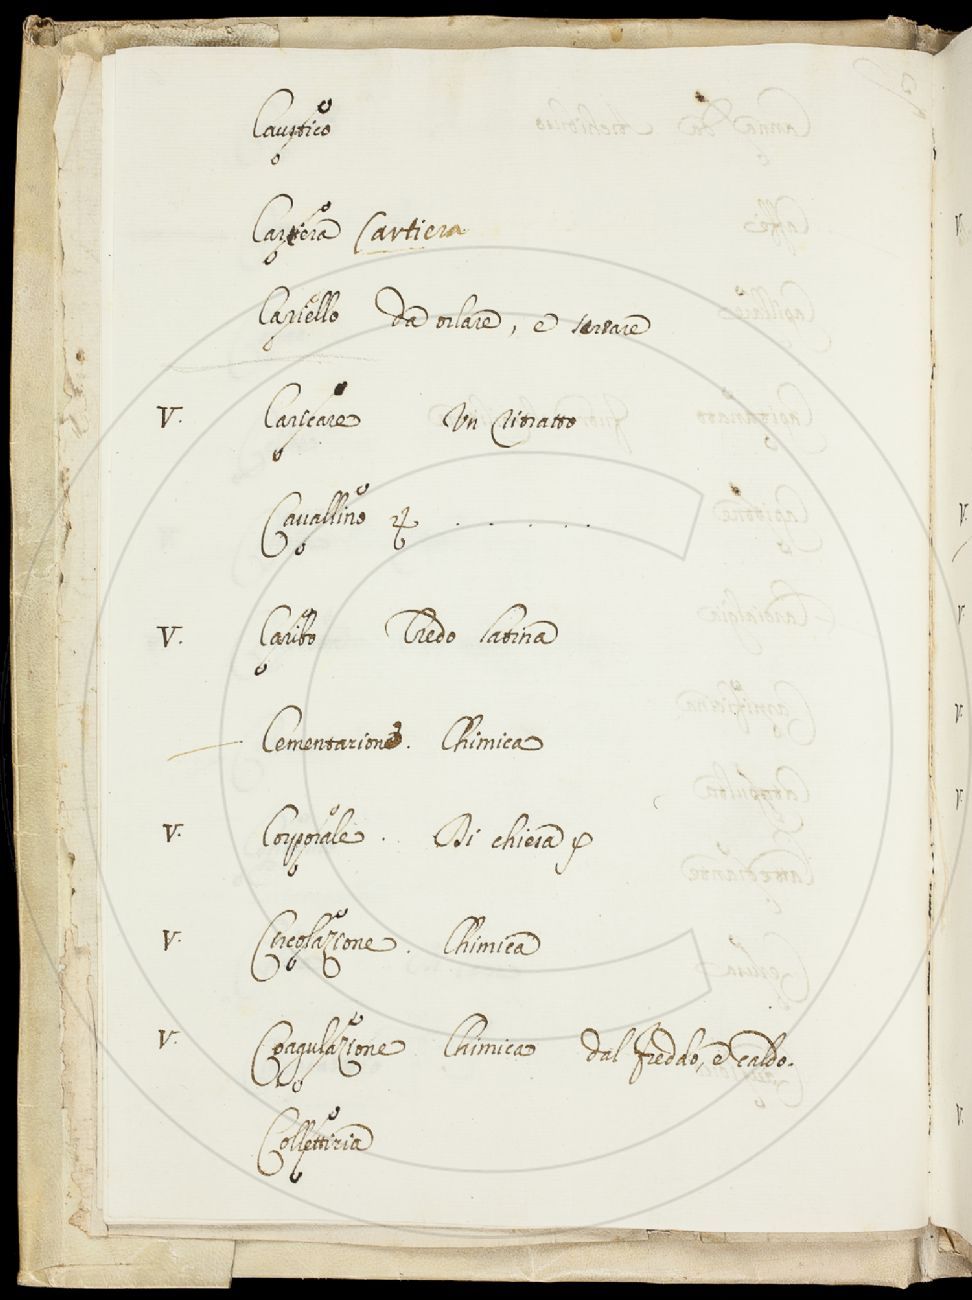 Caustico
Cartiera Cartiera
Capiello da orlare, e
V. Caricare Un Ritratto
Cavallino
V. Credo latina
Cementazione. Chimica
V. Corporale. Di chiesa
V. Circolazione. Chimica
V. Coagulazione Chimica dal freddo, e caldo.